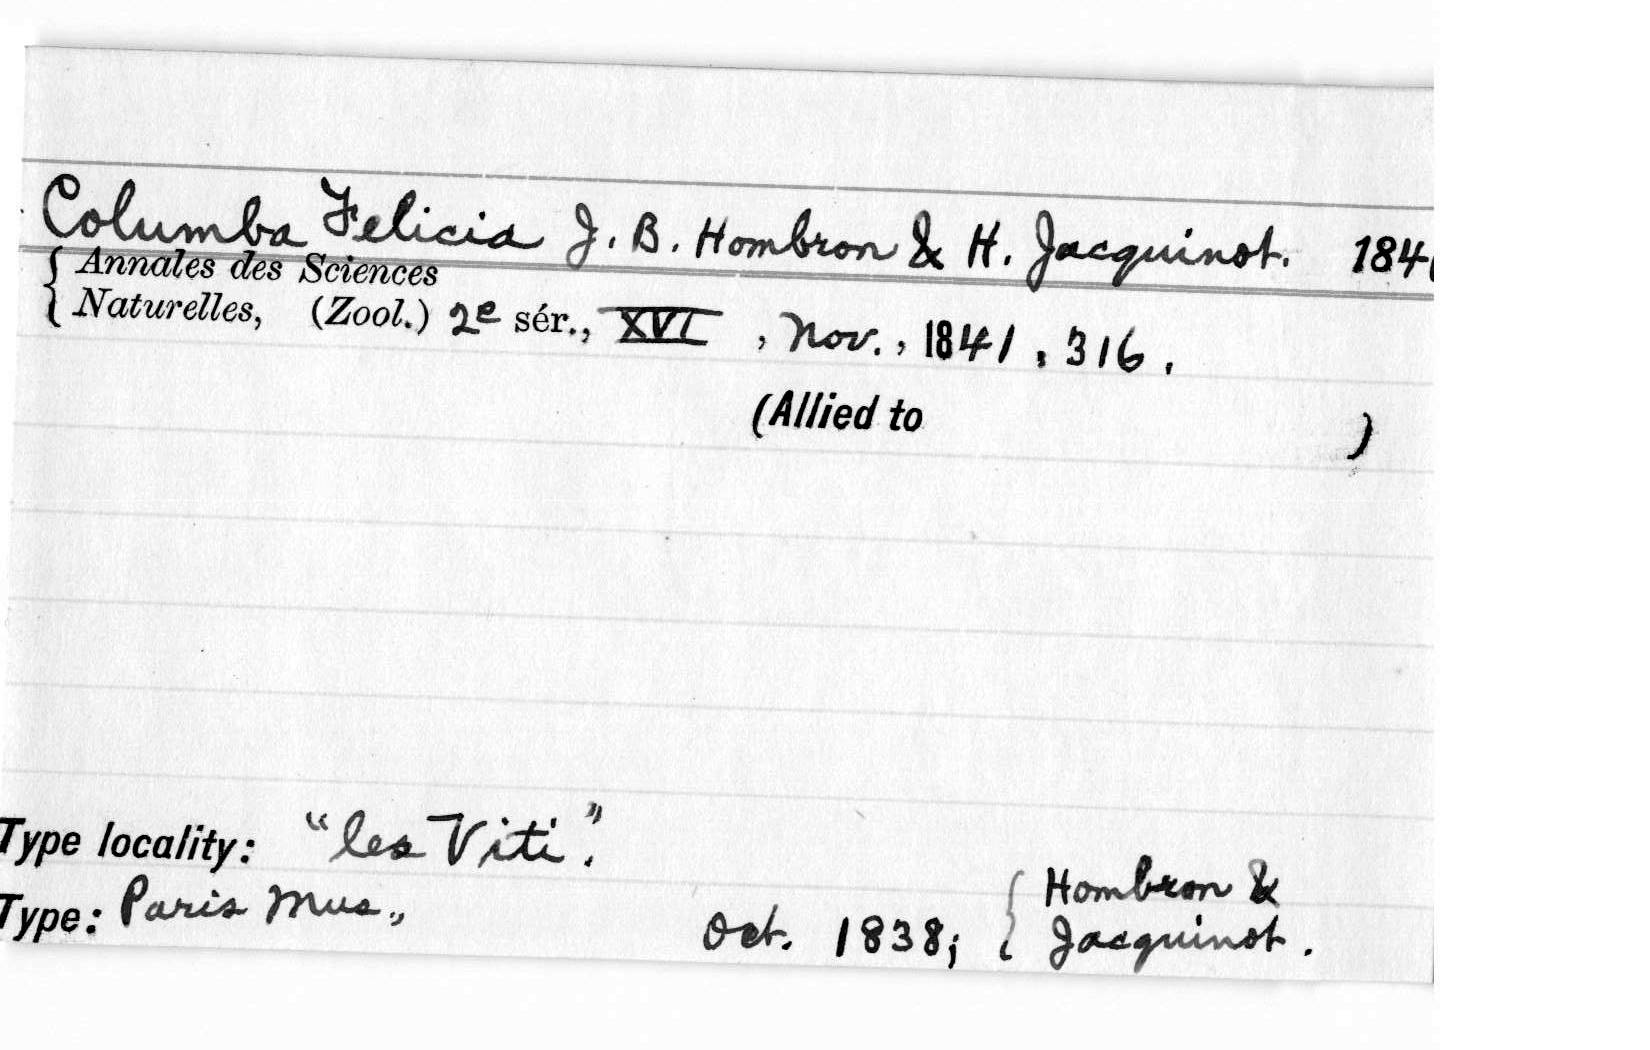 Columba Felicia J. B. Hombron & H. Jacquinot. 184
Annales des Sciences
Naturelles, (Zool.) 2e sér., XVI , Nov., 1841, 316.
(Allied to )
Type locality: "les Viti".
Type: Paris Mus., Oct. 1838; Hombron &
Jacquinot.